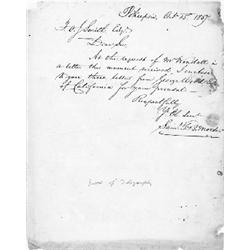 Po'keepsie, Oct. 25th 1857
F. O. J. Smith Esq.
Dear Sir,
At the request of Mr Kendall in
a letter this moment received, I enclose
to you three letters from George
of California for your perusal.
Respectfully
Yr Ob Servt
Saml. F. B. Morse
of Telegraph